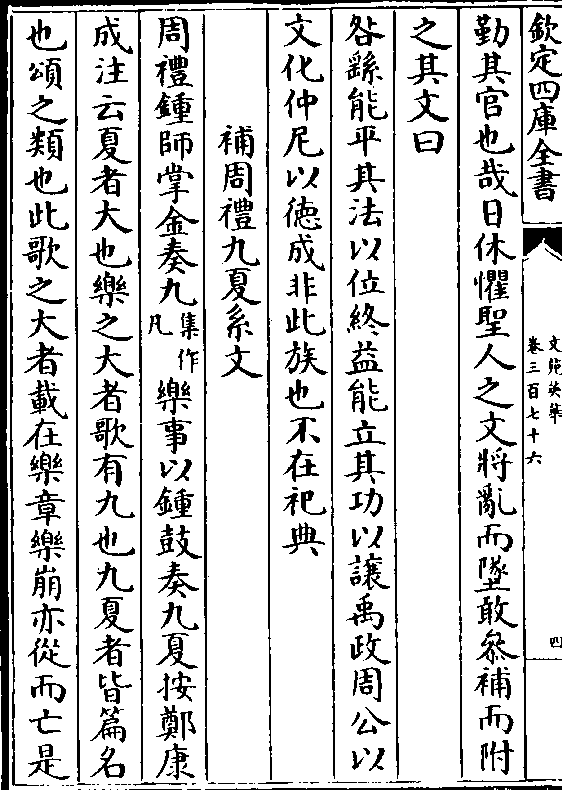 欽定四庫全書
文苑英華
卷三百七十六
四
勤其官也哉日休懼聖人之文將亂而墜敢叅補而附
之其文曰
咎繇能平其法以位終益能立其功以讓禹政周公以
文化仲尼以徳成非此族也不在祀典
補周禮九夏系文
周禮鍾師掌金奏九集作凡樂事以鍾鼓奏九夏按鄭康
成注云夏者大也樂之大者歌有九也九夏者皆篇名
也頌之類也此歌之大者載在樂章樂崩亦從而亡是